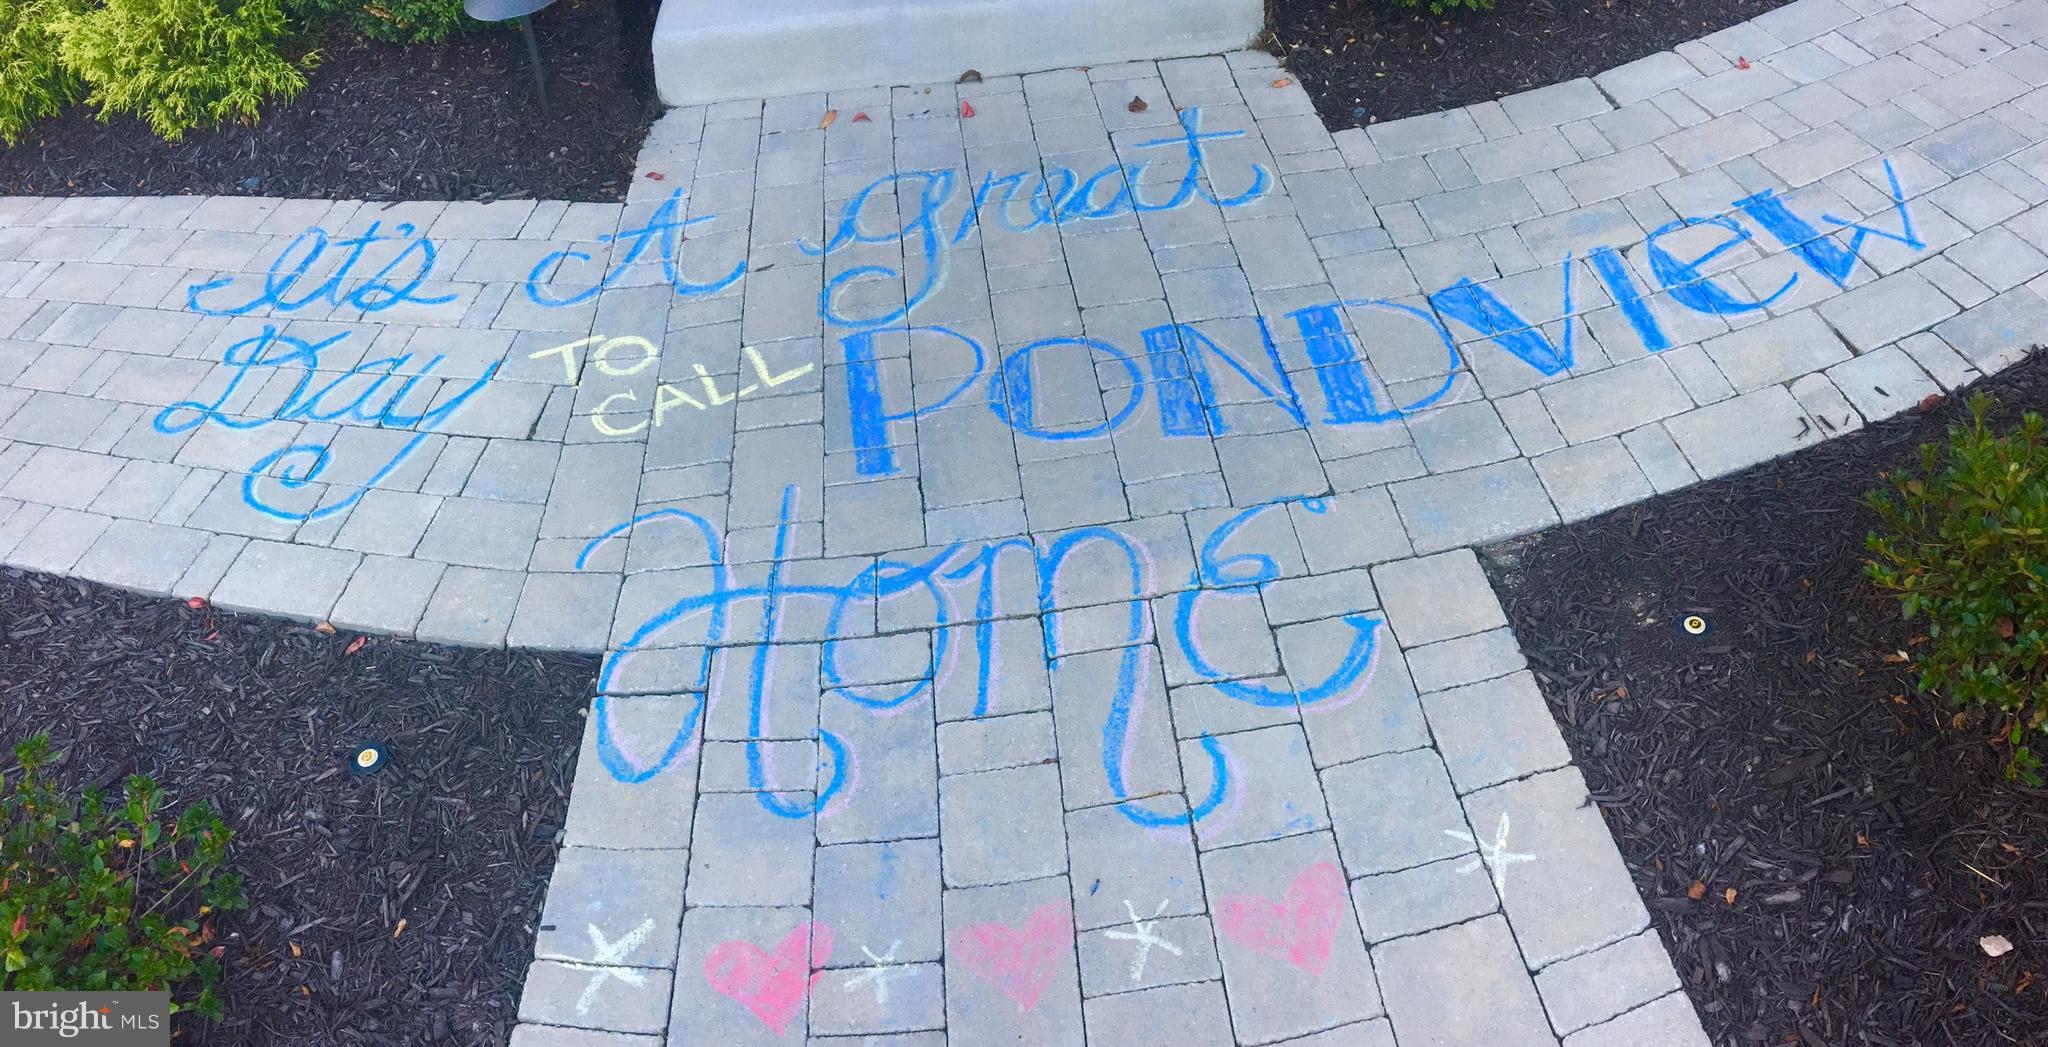 It's A great
Day TO CALL PONDVIEW
Home
bright™ MLS